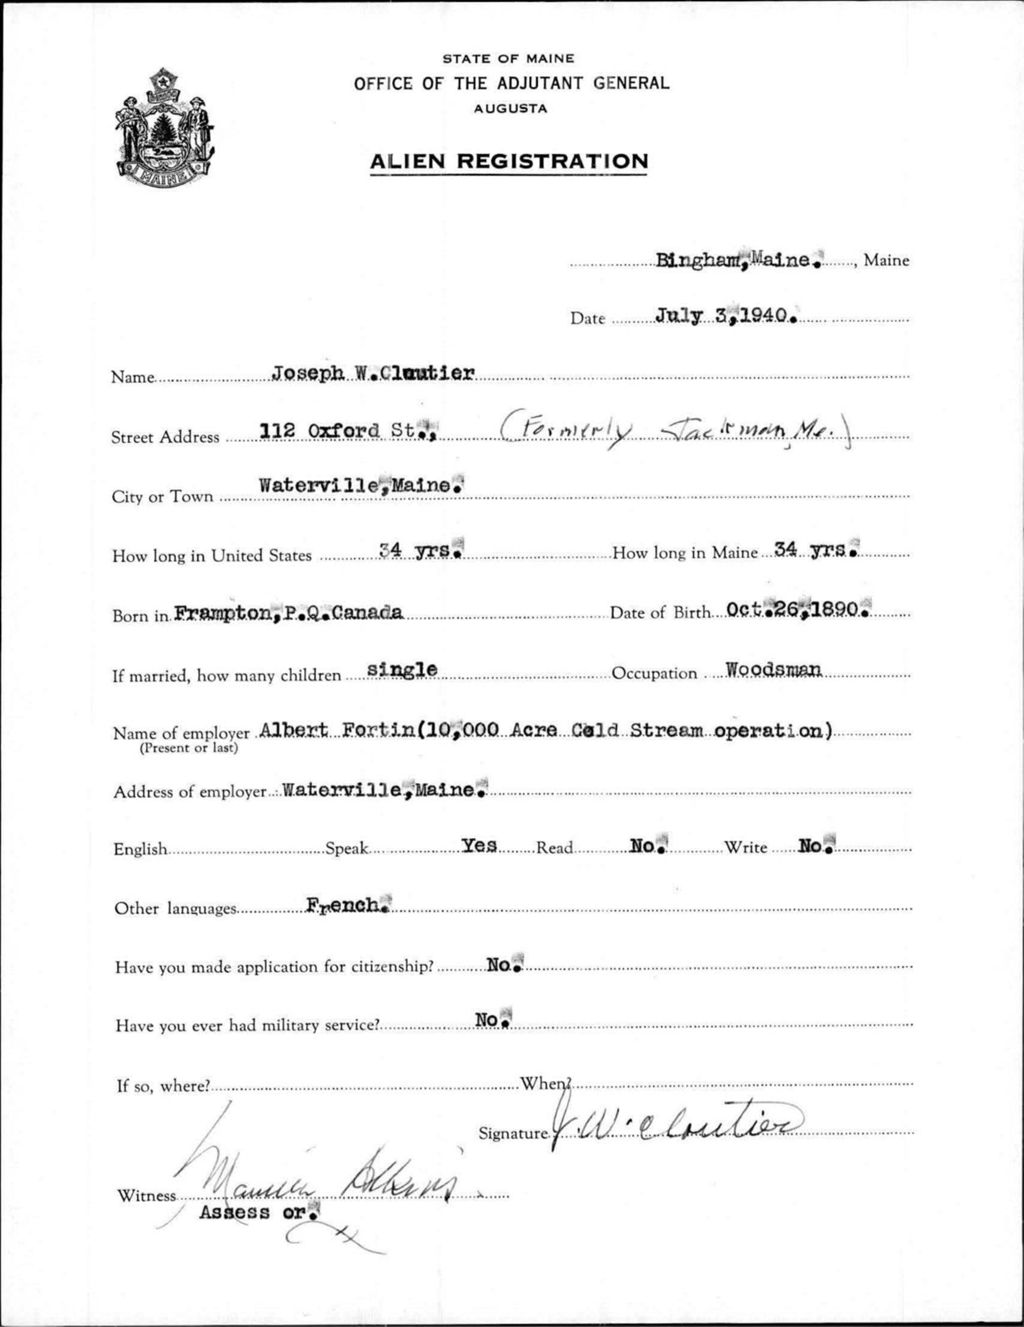 STATE OF MAINE
OFFICE OF THE ADJUTANT GENERAL
AUGUSTA
ALIEN REGISTRATION
MAINE
Bingham,Maine. , Maine
Date July 3,1940.
Name Joseph W.Cloutier
Street Address 112 Oxford St., (Formerly Jackman, Me.)
City or Town Waterville,Maine.
How long in United States 34 yrs. How long in Maine 34 yrs.
Born in Frampton,P.Q.Canada Date of Birth Oct.26,1890.
If married, how many children single Occupation Woodsman
Name of employer Albert Fortin(10,000 Acre Cold Stream operation)
(Present or last)
Address of employer Waterville,Maine.
English Speak Yes Read No. Write No.
Other languages French.
Have you made application for citizenship? No.
Have you ever had military service? No.
If so, where? When?
Signature J.W. Cloutier
Witness Adkins
Assess or.